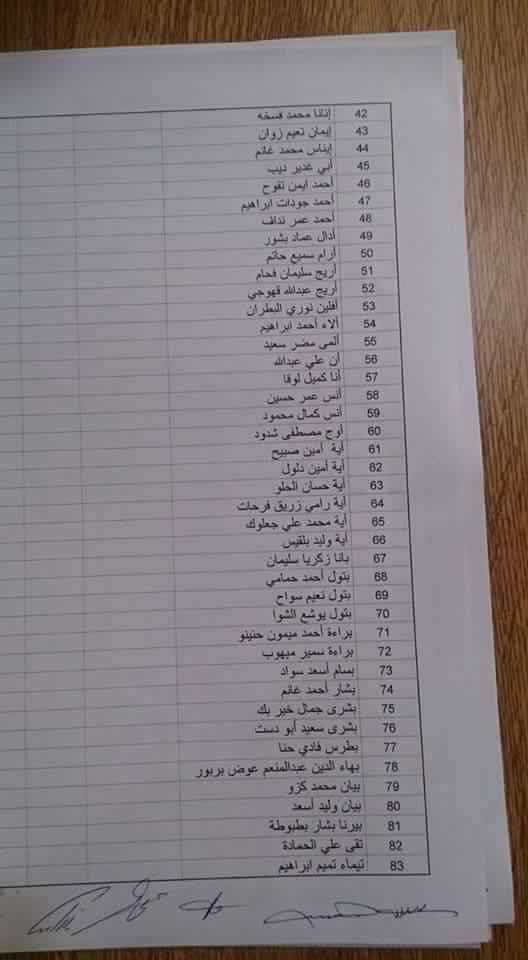 42 إنانا محمد فسخه
43 إيمان نعيم زوان
44 إيناس محمد غانم
45 أبي غدير ديب
46 أحمد ايمن تفوح
47 أحمد جودات ابراهيم
48 أحمد عمر نداف
49 أدال عماد بشور
50 أرام سميع حاتم
51 أريج سليمان فحام
52 أريج عبدالله قهوجي
53 أفلين نوري البطران
54 ألاء أحمد ابراهيم
55 ألمى مضر سعيد
56 أن علي عبدالله
57 أنا كميل لوقا
58 أنس عمر حسين
59 أنس كمال محمود
60 أوج مصطفى شدود
61 أية أمين صبيح
62 أية أمين دلول
63 أية حسان الحلو
64 أية رامي زريق فرحات
65 أية محمد علي جعلوك
66 أية وليد بلقيس
67 بانا زكريا سليمان
68 بتول أحمد حمامي
69 بتول نعيم سواح
70 بتول يوشع الشوا
71 براءة أحمد ميمون حنينو
72 براءة سمير ميهوب
73 بسام أسعد سواد
74 بشار أحمد غانم
75 بشرى جمال خير بك
76 بشرى سعيد أبو دست
77 بطرس فادي حنا
78 بهاء الدين عبدالمنعم عوض بربور
79 بيان محمد كزو
80 بيان وليد أسعد
81 بيرنا بشار بطبوطة
82 تقى علي الحمادة
83 تيماء تميم ابراهيم